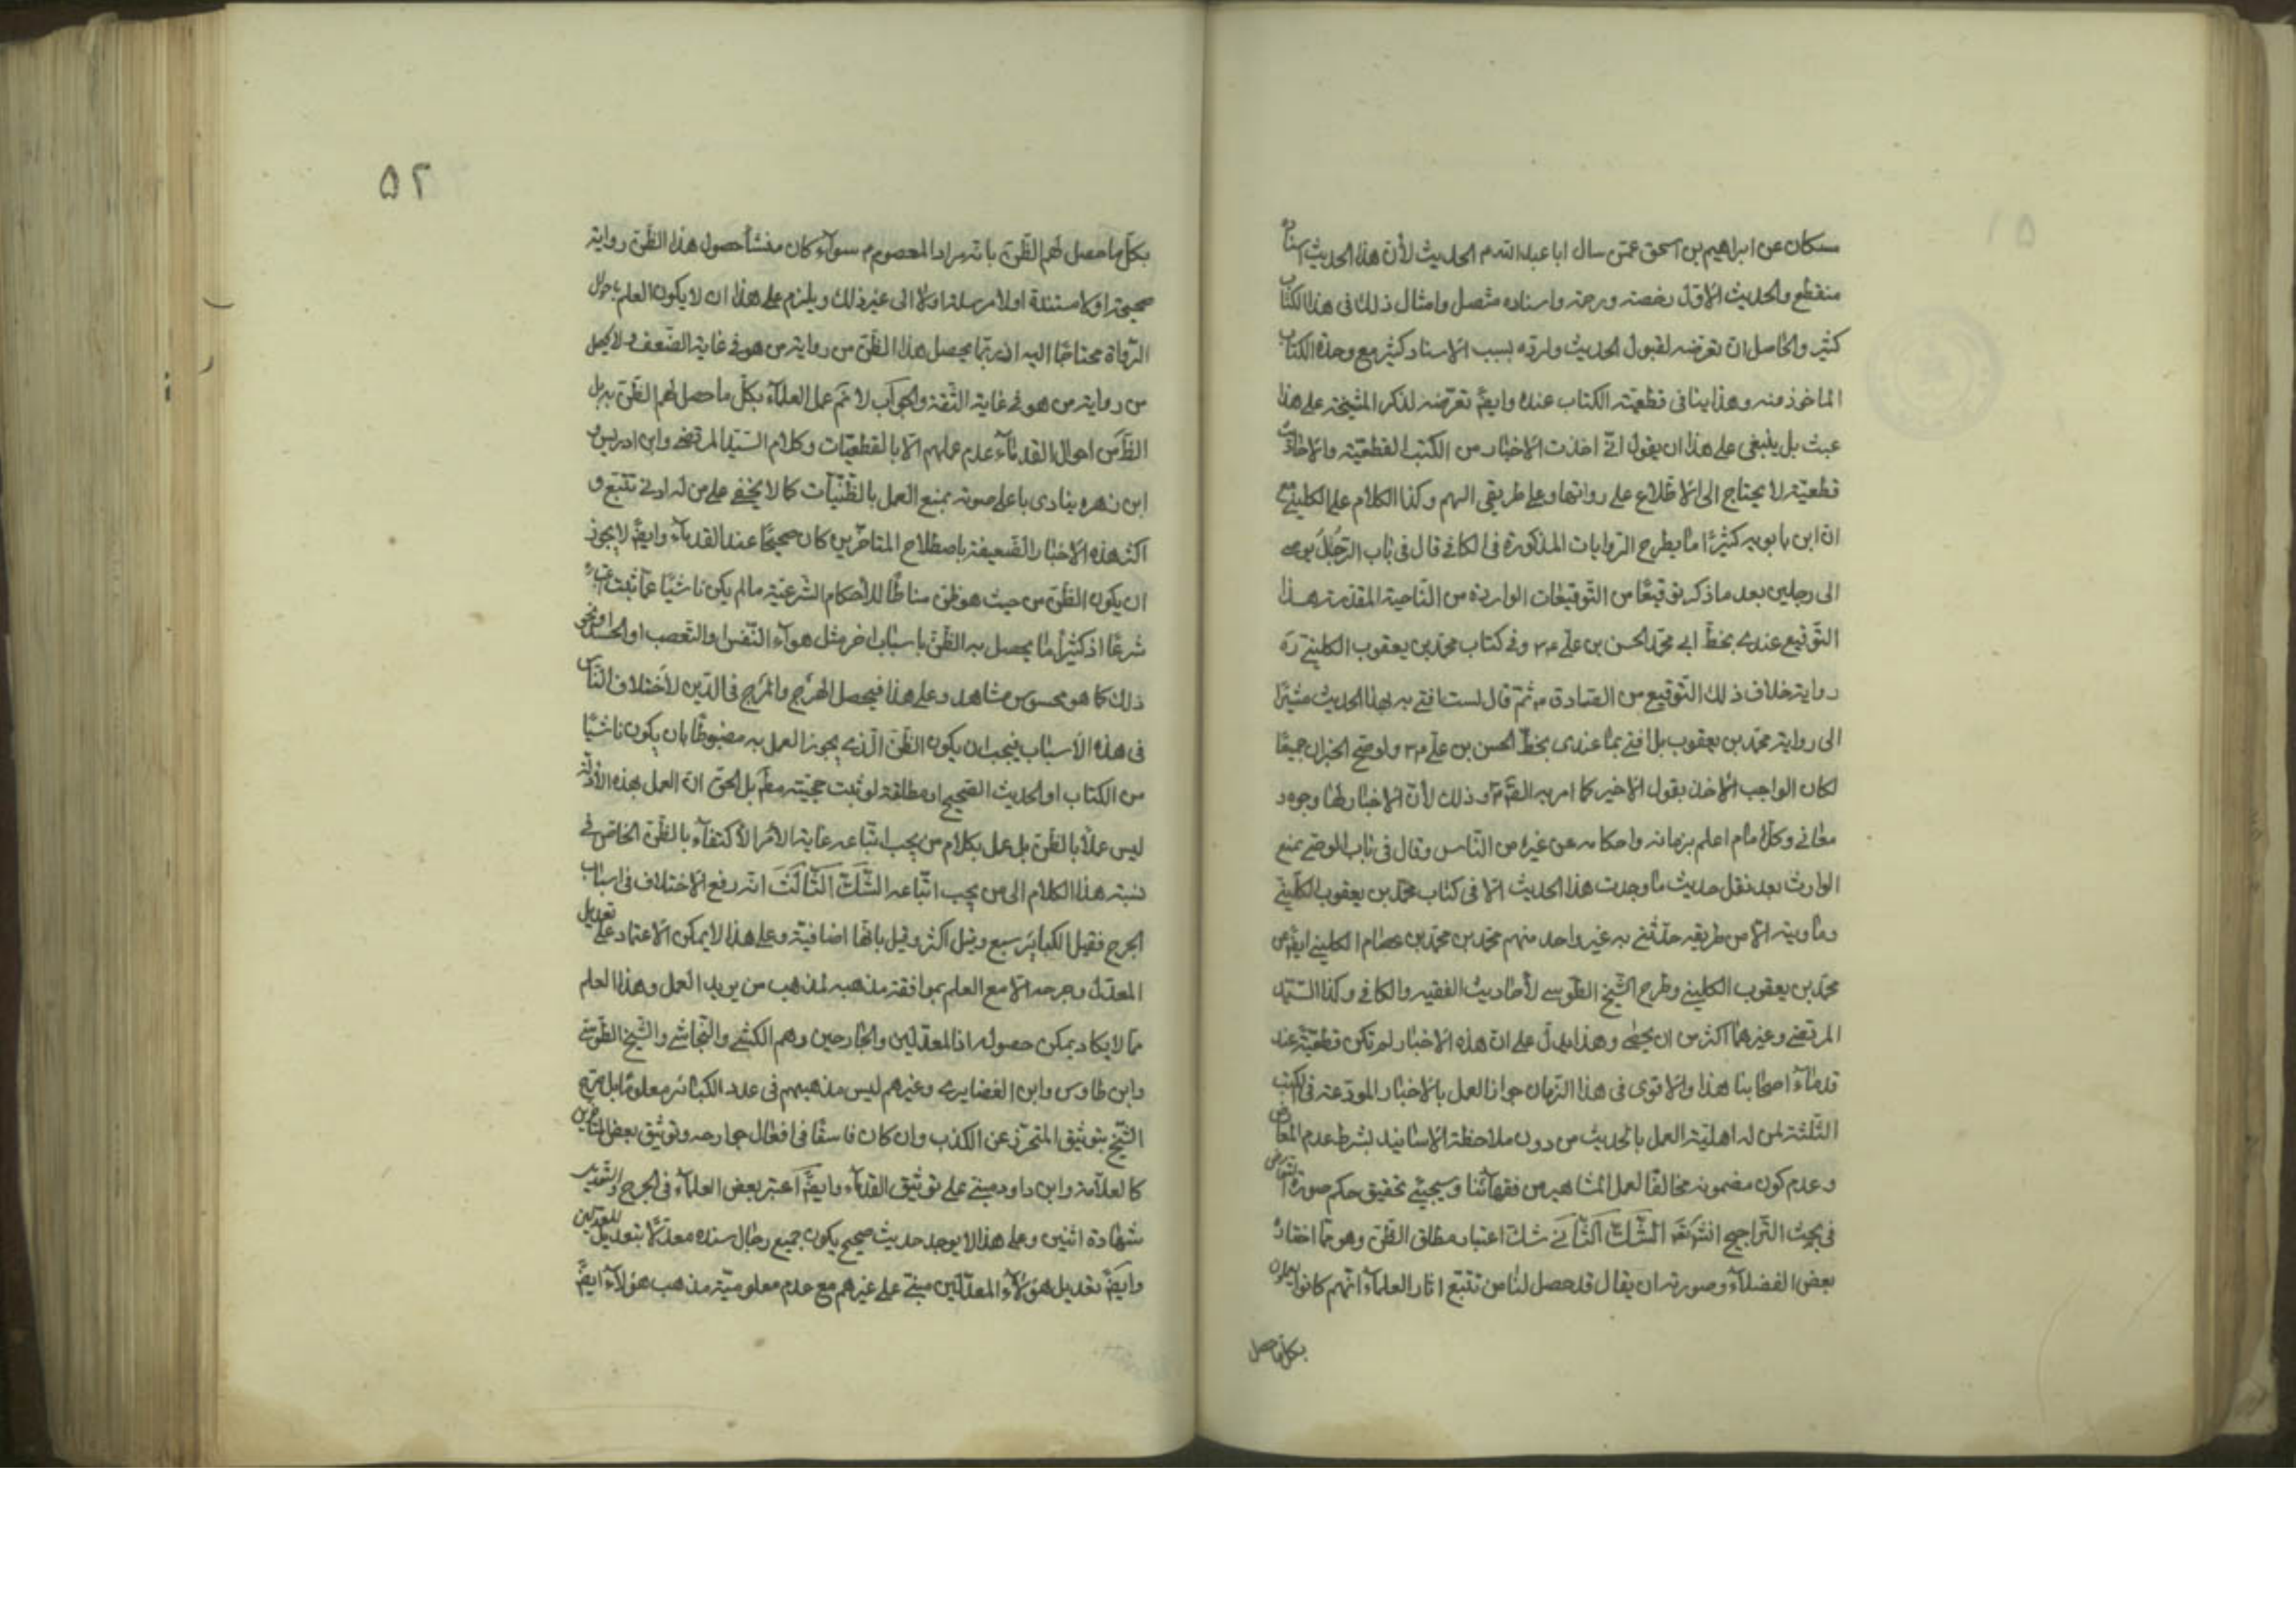 مسكان عن ابراهيم بن اسحق عمّن سال ابا عبد الله م الحديث لأن هذا الحديث اسناده
منقطع والحديث الاوّل رخصة ورحمة واسناده متّصل وامثال ذلك فى هذا الكتاب
كثير والحاصل ان تعرّضه لقبول الحديث ولردّه بسبب الاسناد كثير مع وحدة الكتاب
الماخوذ منه وهذا ينافى قطعيّة الكتاب عنده وايضً تعرّضه لذكر المشيخة على هذا
عبث بل ينبغى على هذا ان يقول انّى اخذت الاخبار من الكتب القطعيّة والاخبار
قطعيّة لا يحتاج الى الاطلاع على رواتها وعلى طريقى اليهم وكذا الكلام على الكلينى مع
انّ ابن بابويه كثيرًا ما يطرح الرّوايات المذكورة فى الكافى قال فى باب الرّجلَ يوصى
الى رجلين بعد ما ذكر توقيعًا من التّوقيعات الواردة من النّاحية المقدّسة هذا
التّوقيع عندى بخطّ ابى محمّد الحسن بن علىّ وفى كتاب محمّد بن يعقوب الكلينى ره
رواية خلاف ذلك التّوقيع من الصّادق م ثمّ قال لست افتى بهذا الحديث مشيرًا
الى رواية محمّد بن يعقوب بل افتى بما عندى بخطّ الحسن بن علىّ ولو صحّ الخبران جميعًا
لكان الواجب الاخذ بقول الاخير كما امر به الصّم وذلك لأنّ الاخبار لها وجوه و
معانى وكلّ امام اعلم بزمانه واحكامه عن غيره من النّاس وقال فى باب الموصى يمنع
الوارث بعد نقل حديث ما وجدت هذا الحديث الّا فى كتاب محمّد بن يعقوب الكلينى
وما رويته الّا من طريقه حدّثنى به غير واحد منهم محمّد بن محمّد بن عصام الكلينى ايضً عن
محمّد بن يعقوب الكلينى وطرح الشّيخ الطّوسى لأحاديث الفقيه والكافى وكذا السّيّد
المرتضى وغيرهما اكثر من ان يحصى وهذا يدلّ على انّ هذه الاخبار لم تكن قطعيّة عند
قدماء اصحابنا هذا والاقوى فى هذا الزّمان جواز العمل بالاخبار المودعة فى الكتب
الثّلثة لمن له اهليّة العمل بالحديث من دون ملاحظة الاسانيد بشرط عدم المعارض
وعدم كون مضمونه مخالفًا لعمل المشاهير من فقهائنا وسيجىء تحقيق حكم صورة التعارض
فى بحث التّراجيح انشَ تعَ الشّك الثّانى شك اعتبار مطلق الظّن وهو ممّا اختاره
بعض الفضلاء وصورته ان يقال قد حصل لنا من تتّبع اثار العلماء انّهم كانوا يعملون
بكل ما حصل
٥٢
بكلّ ما حصل لهم الظّنّ بانّه مراد المعصوم م سواء كان منشأ حصول هذا الظّنّ رواية
صحيحة او لا مسندة او لا مرسلة او لا الى غير ذلك ويلزم على هذا ان لا يكون العلم باحوال
الرّواة محتاجًا اليه اذ ربّما يحصل هذا الظّنّ من رواية من هو فى غاية الضّعف ولا يحصل
من رواية من هو فى غاية الثّقة والجواب لا نمّ عمل العلماء بكلّ ما حصل لهم الظّنّ به بل
الظّ من احوال القدماء عدم عملهم الّا بالقطعيّات وكلام السّيّد المرتضى وابن ادريس و
ابن زهره ينادى باعلى صوته بمنع العمل بالظّنّيّات كما لا يخفى على من له ادنى تتّبع و
اكثر هذه الاخبار الضّعيفة باصطلاح المتاخّرين كان صحيحًا عند القدماء وايضً لا يجوز
ان يكون الظّنّ من حيث هو ظنّ مناطًا للأحكام الشّرعيّة ما لم يكن ناشيًا عمّا ثبت اعتباره
شرعًا اذ كثيرًا ما يحصل به الظّنّ باسباب اخر مثل هوآء النّفس والتّعصب او الحسد او نحو
ذلك كما هو محسوس مشاهد وعلى هذا فيحصل الهرج والمرج فى الدّين لأختلاف النّاس
فى هذه الاسباب فيجب ان يكون الظّنّ الّذى يجوز العمل به مضبوطًا بان يكون ناشيًا
من الكتاب او الحديث الصّحيح او مطلقه لو ثبت حجيّته مطَّ بل الحق انّ العمل بهذه الأدلّة
ليس عملًا بالظّنّ بل عمل بكلام من يجب اتّباعه غاية الأمر الأكتفاء بالظّنّ الخاصّ فى
نسبة هذا الكلام الى من يجب اتّباعه الشّك الثّالث انّه رفع الاختلاف فى اسباب
الجرح فقيل الكبائر سبع وقيل اكثر وقيل بانّها اضافيّة وعلى هذا لا يمكن الاعتماد على تعديل
المعدّل وجرحه الّا مع العلم بموافقة مذهبه لمذهب من يريد العمل وهذا العلم
ممّا لا يكاد يمكن حصوله اذ المعدّلين والجارحين وهم الكشّى والنّجاشى والشّيخ الطّوسى
وابن طاوس وابن الغضايرى وغيرهم ليس مذهبهم فى عدد الكبائر معلومًا بل صرّح
الشّيخ بتوثيق المتحرّز عن الكذب وان كان فاسقًا فى افعال جوارحه وتوثيق بعض المتاخّرين
كالعلّامة وابن داود مبنى على توثيق القدماء وايضً اعتبر بعض العلماء فى الجرح والتعديل
شهادة اثنين وعلى هذا لا يوجد حديث صحيح يكون جميع رجال سنده معدّلًا بتعديل المعدّلين
وايضً تعديل هؤلاء المعدّلين مبنى على غيرهم مع عدم معلوميّة مذهب هؤلاء ايضً